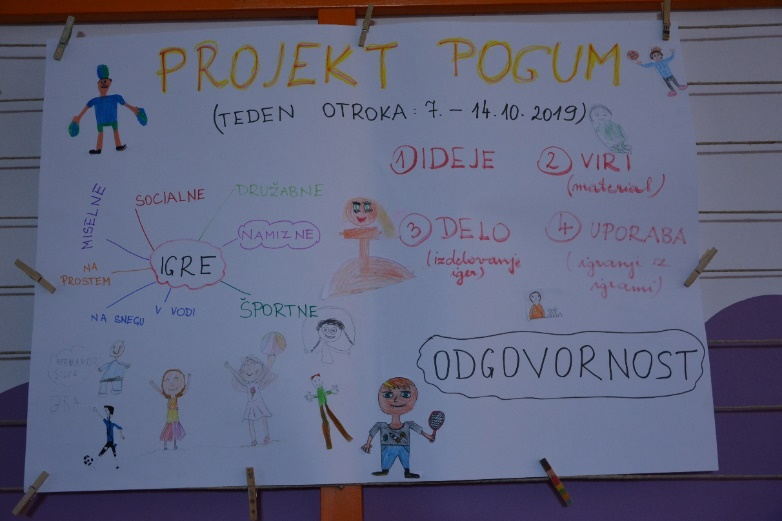 PROJEKT POGUM
(TEDEN OTROKA: 7. – 14.10.2019)
① IDEJE
② VIRI
(material)
③ DELO
(izdelovanje
iger)
④ UPORABA
(igranje z
igrami)
MISELNE
SOCIALNE
DRUŽABNE
NAMIZNE
IGRE
NA
PROSTEM
NA SNEGU
V VODI
ŠPORTNE
ODGOVORNOST